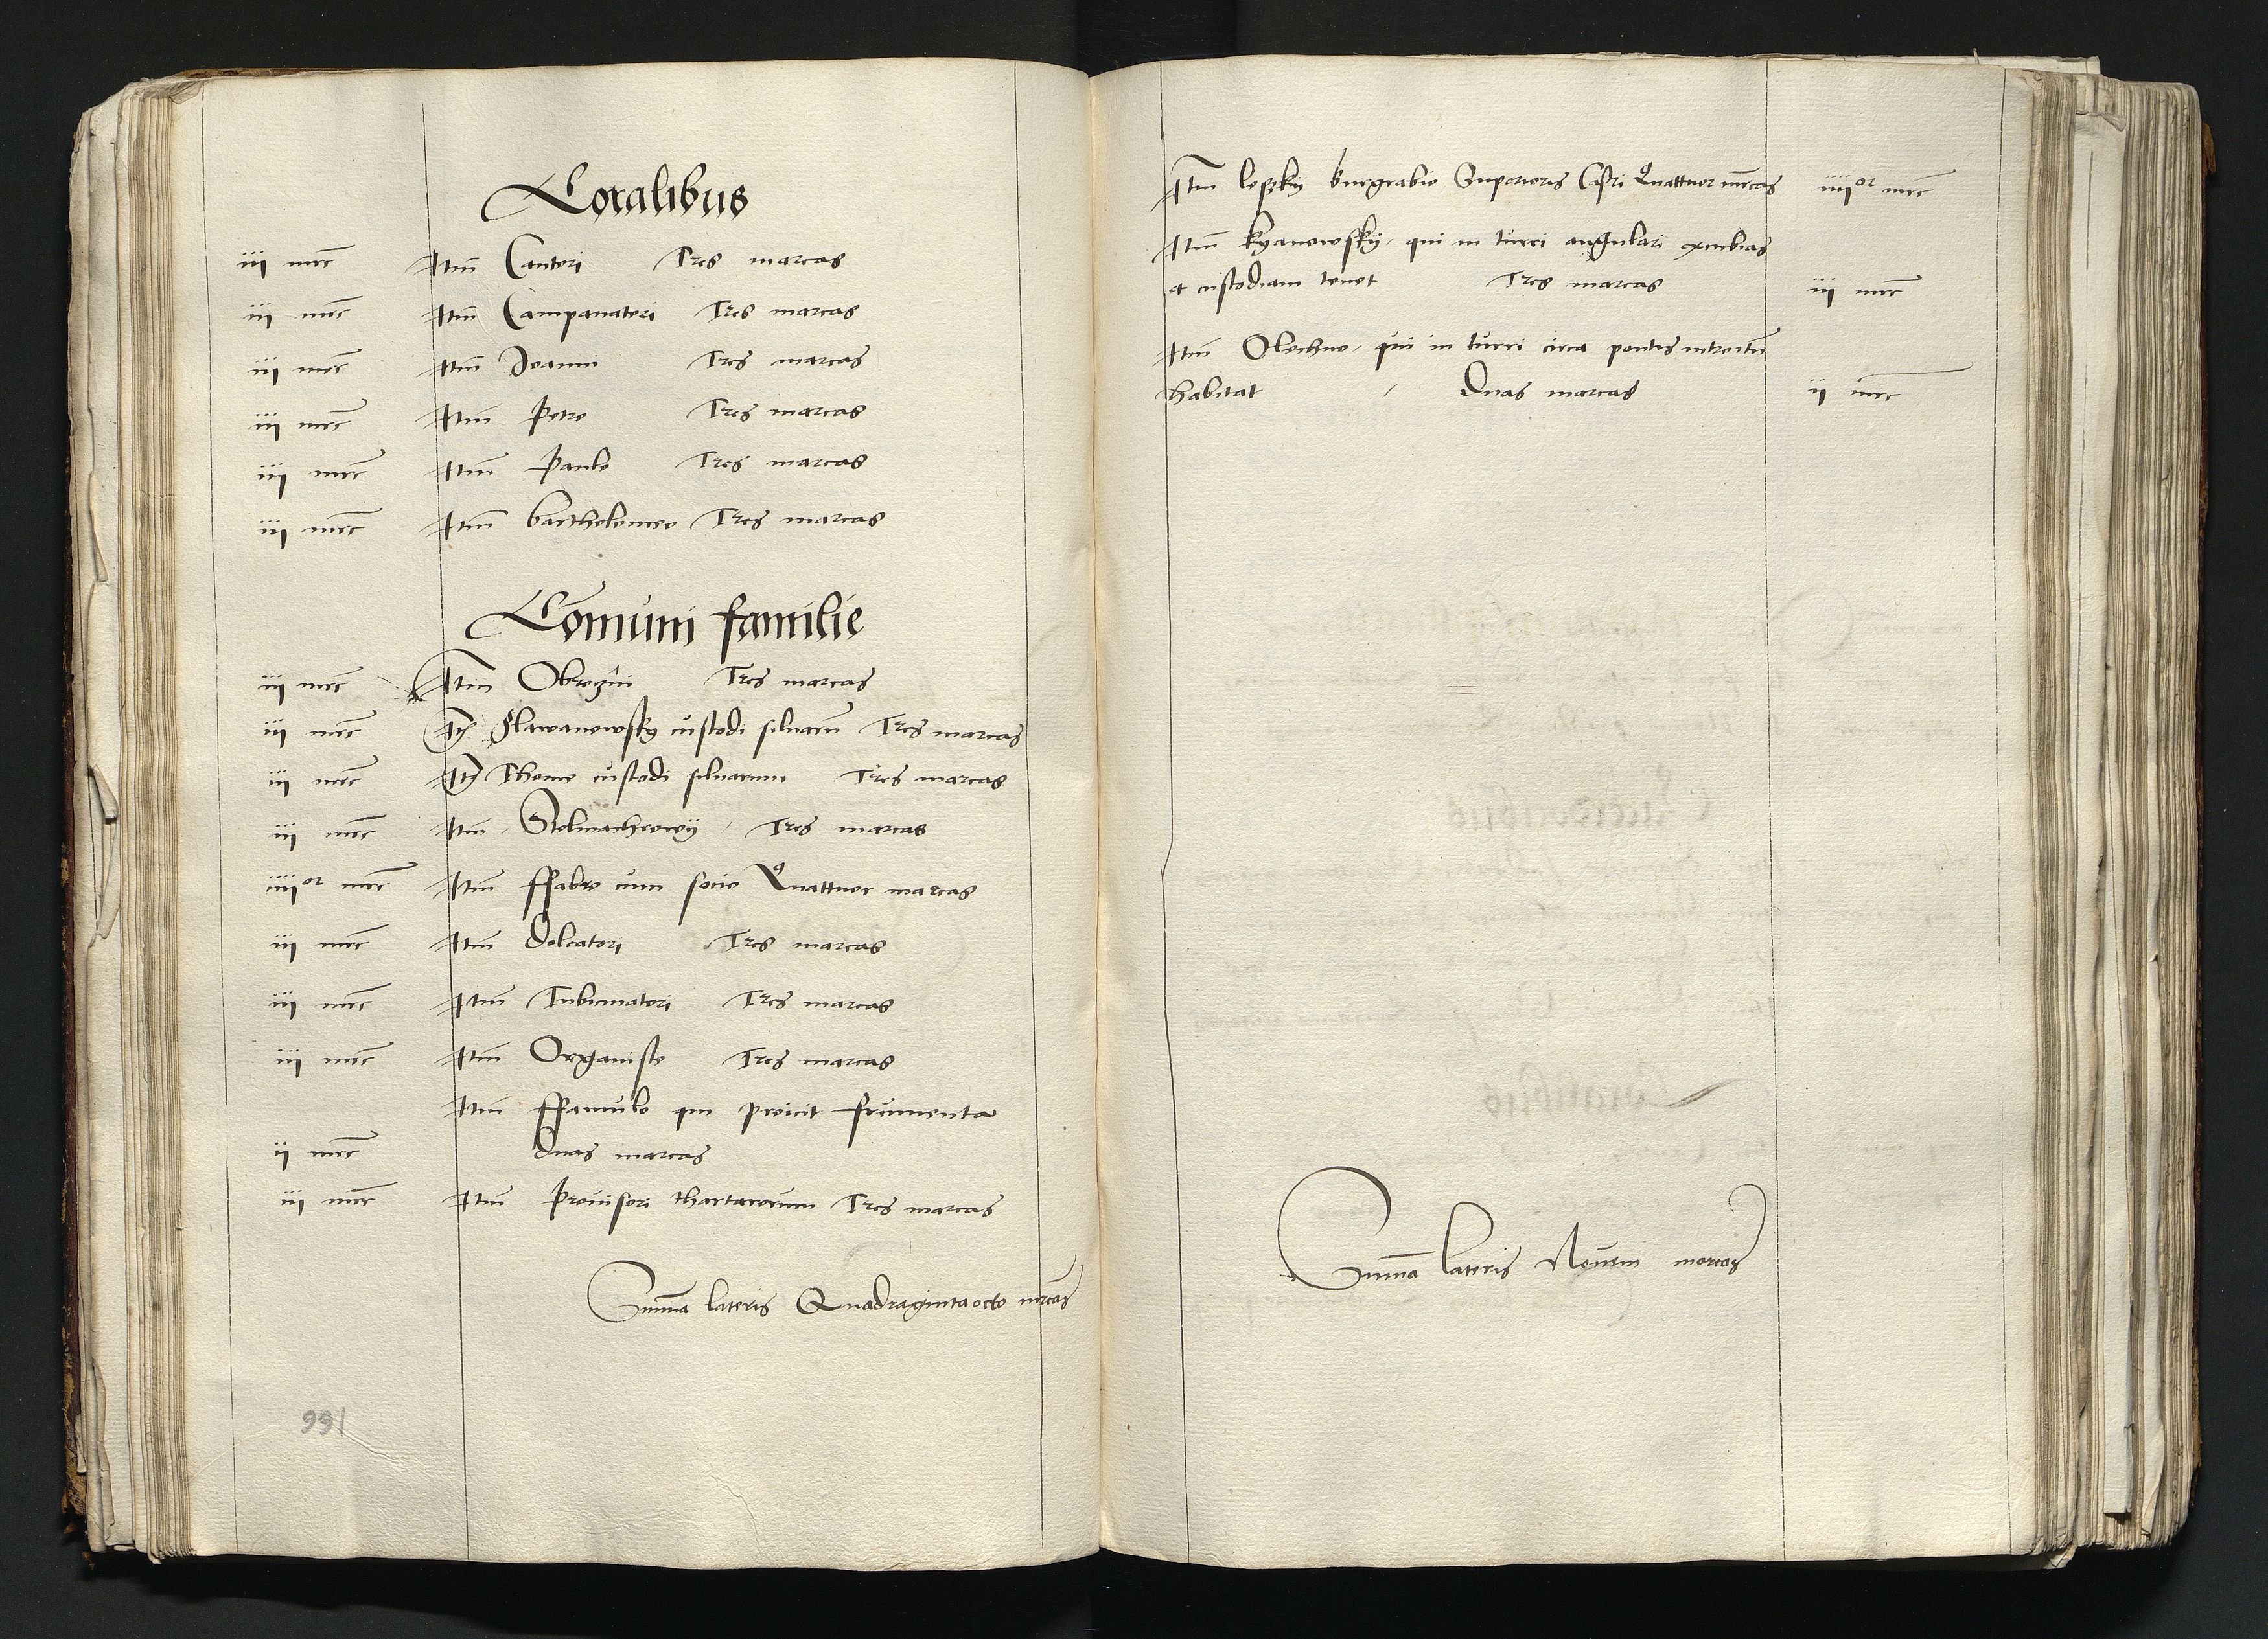 Coralibus
iii mrc Itm Cantori Tres marcas
iii mrc Itm Campanatori Tres marcas
iii mrc Itm Joanni Tres marcas
iii mrc Itm Petro Tres marcas
iii mrc Itm Paulo Tres marcas
iii mrc Itm bartholomeo Tres marcas
Comuni familie
iii mrc Itm Tres marcas
iii mrc It Slawanowsky custodi siluaru Tres marcas
iii mrc It Thome custodi siluarum Tres marcas
iii mrc Itm Stolmachrowy Tres marcas
iiiior mrc Itm ffabro cum socio Quattuor marcas
iii mrc Itm doleatori Tres marcas
iii mrc Itm Tubicinatori Tres marcas
iii mrc Itm Organiste Tres marcas
Itm ffamulo qui proicit frumenta
ii mrc duas marcas
iii mrc Itm Prouisori thartarorum Tres marcas
Summa lateris Quadragintaocto mrcas
166
Itm leszky burgrabio Superioris Castri Quattuor mrcas iiiior mrc
Itm kyanowsky qui in turri angulari excubias
et custodiam tenet Tres marcas iii mrc
Itm Olechno qui in turri circa pontis introitu
habitat Duas marcas ii mrc
Summa lateris Nouem marcas